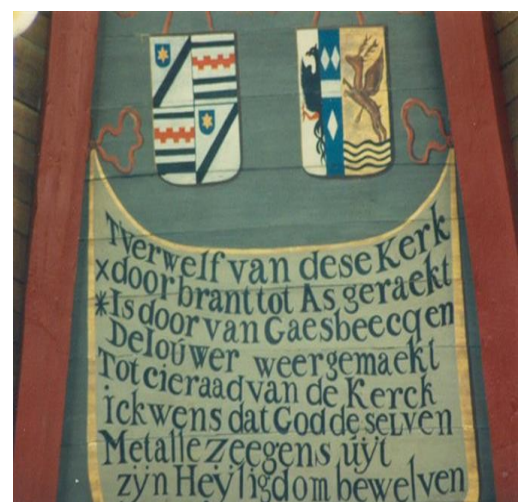 T'verwelf van dese Kerk
x door brant tot As geraekt
* Is door van Gaesbeecq en
De loúwer weergemaekt
Tot cieraad van de Kerck
ick wens dat God de selven
Met alle zeegens uÿt
zÿn Heÿligdom bewelven